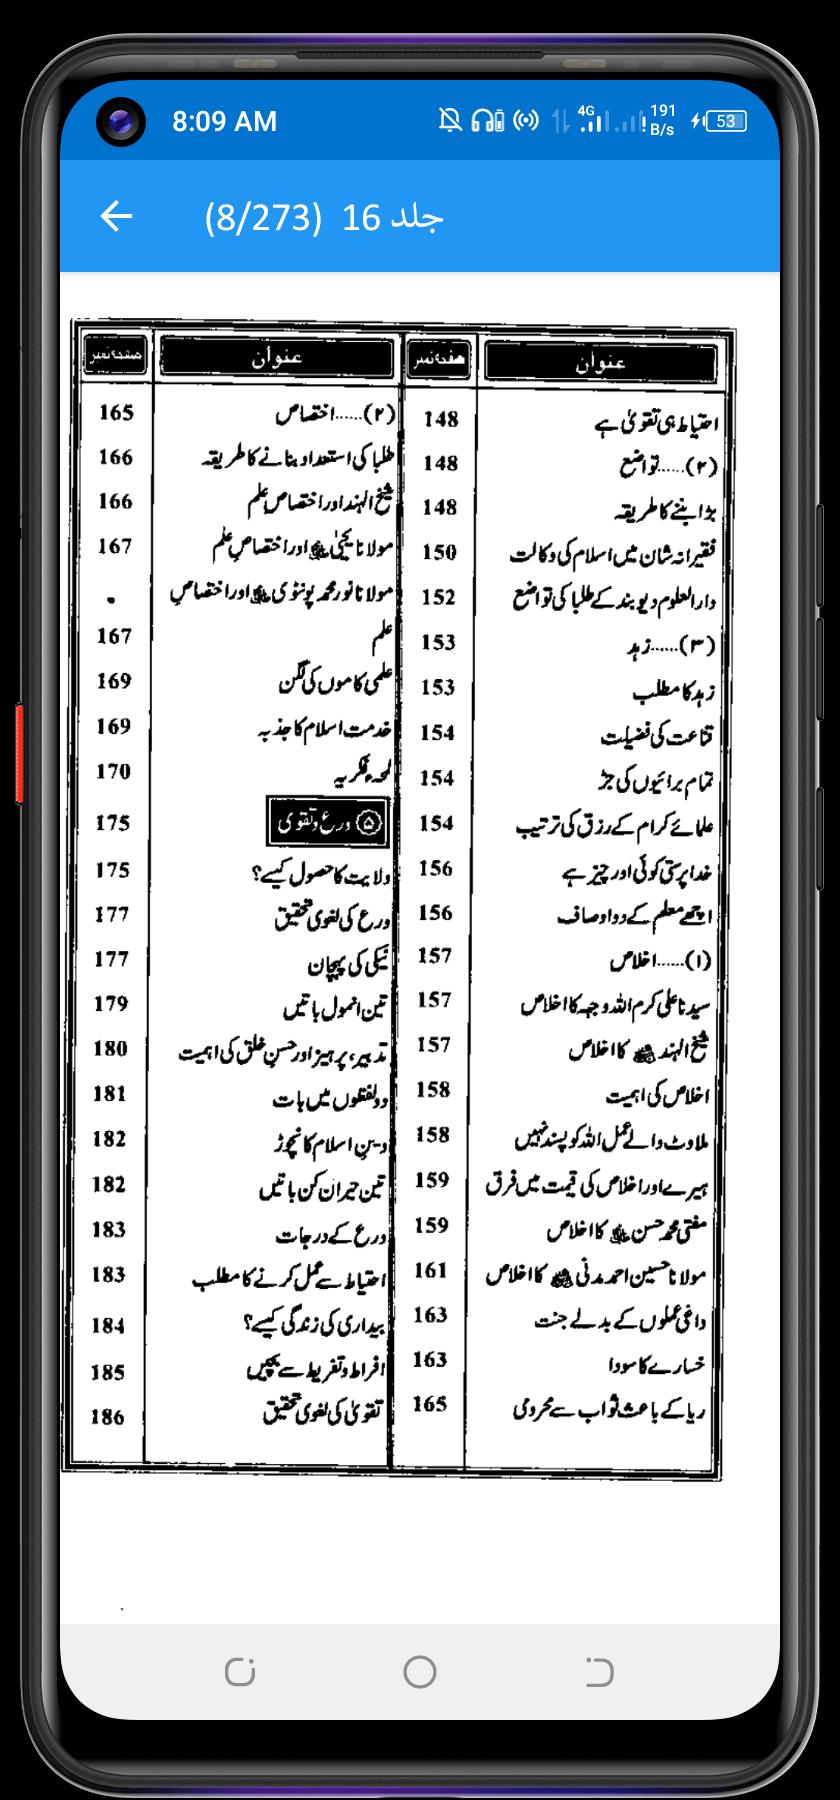 8:09 AM
4G
191 B/s
53
جلد 16 (8/273)
عنوان صفحہ نمبر
احتیاط ہی تقویٰ ہے 148
(۲)......تواضع 148
بڑا بننے کا طریقہ 148
فقیرانہ شان میں اسلام کی وکالت 150
دارالعلوم دیوبند کے طلبا کی تواضع 152
(۳)......زہد 153
زہد کا مطلب 153
قناعت کی فضیلت 154
تمام برائیوں کی جڑ 154
علمائے کرام کے رزق کی ترتیب 154
خدا پرستی کوئی اور چیز ہے 156
اچھے معلم کے دو اوصاف 156
(۱)......اخلاص 157
سیدنا علی کرم اللہ وجہہ کا اخلاص 157
شیخ الہند رحمۃ اللہ علیہ کا اخلاص 157
اخلاص کی اہمیت 158
ملاوٹ والے عمل اللہ کو پسند نہیں 158
ہیرے اور اخلاص کی قیمت میں فرق 159
مفتی محمد حسن رحمۃ اللہ علیہ کا اخلاص 159
مولانا حسین احمد مدنی رحمۃ اللہ علیہ کا اخلاص 161
داغی عملوں کے بدلے جنت 163
خسارے کا سودا 163
ریا کے باعث ثواب سے محرومی 165
عنوان صفحہ نمبر
(۲)......اختصاص 165
طلبا کی استعداد بنانے کا طریقہ 166
شیخ الہند اور اختصاصِ علم 166
مولانا یحییٰ رحمۃ اللہ علیہ اور اختصاصِ علم 167
مولانا نور محمد پونٹوی رحمۃ اللہ علیہ اور اختصاصِ
علم 167
علمی کاموں کی لگن 169
خدمت اسلام کا جذبہ 169
لمحہء فکریہ 170
۵ ورع و تقوی 175
ولایت کا حصول کیسے؟ 175
ورع کی لغوی تحقیق 177
نیکی کی پہچان 177
تین انمول باتیں 179
تدبیر، پرہیز اور حسنِ خلق کی اہمیت 180
دو لفظوں میں بات 181
دینِ اسلام کا نچوڑ 182
تین حیران کن باتیں 182
ورع کے درجات 183
احتیاط سے عمل کرنے کا مطلب 183
بیداری کی زندگی کیسے؟ 184
افراط و تفریط سے بچیں 185
تقویٰ کی لغوی تحقیق 186